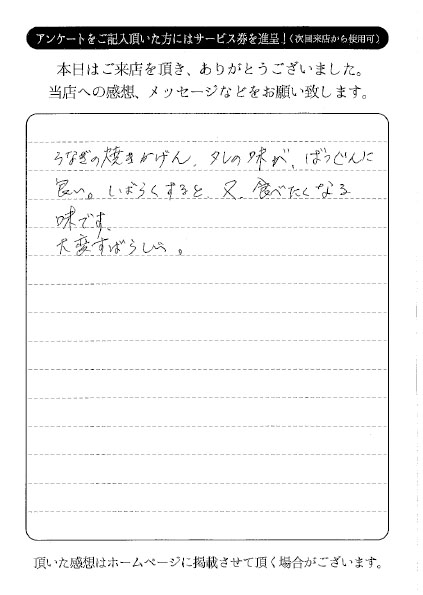 アンケートをご記入頂いた方にはサービス券を進呈！（次回来店から使用可）
本日はご来店を頂き、ありがとうございました。
当店への感想、メッセージなどをお願い致します。
うなぎの焼きかげん、タレの味が、ばつぐんに
良い。しばらくすると、又、食べたくなる
味です、
大変すばらしい。
頂いた感想はホームページに掲載させて頂く場合がございます。